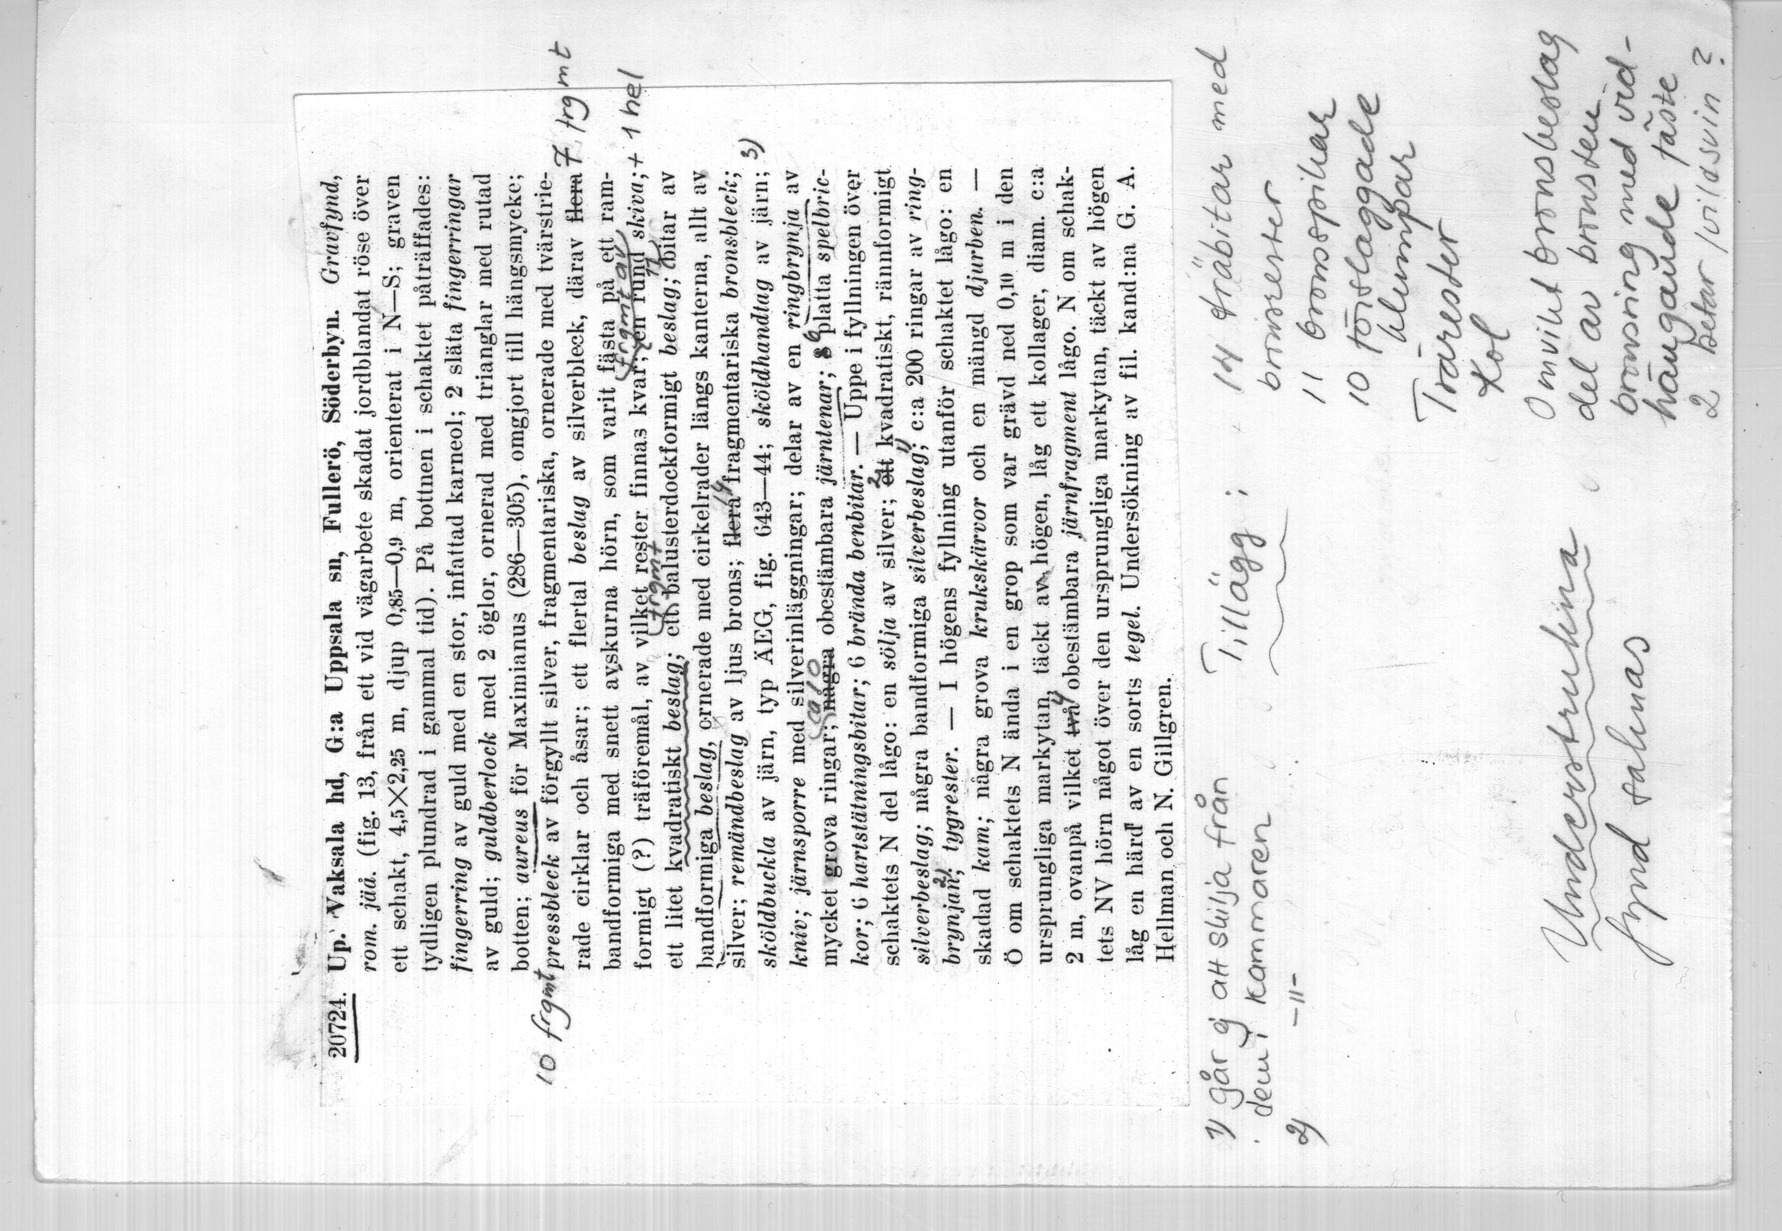 20724. Up. Vaksala hd, G:a Uppsala sn, Fullerö, Söderbyn. Gravfynd,
rom. jäå. (fig. 13, från ett vid vägarbete skadat jordblandat röse över
ett schakt, 4,5×2,25 m, djup 0,85—0,9 m, orienterat i N—S; graven
tydligen plundrad i gammal tid). På bottnen i schaktet påträffades:
fingerring av guld med en stor, infattad karneol; 2 släta fingerringar
av guld; guldberlock med 2 öglor, ornerad med trianglar med rutad
botten; aureus för Maximianus (286—305), omgjort till hängsmycke;
10 frgmt pressbleck av förgyllt silver, fragmentariska, ornerade med tvärstrie-
rade cirklar och åsar; ett flertal beslag av silverbleck, därav flera 7 frgmt
bandformiga med snett avskurna hörn, som varit fästa på ett ram-
frgmt av
formigt (?) träföremål, av vilket rester finnas kvar; en rund skiva; + 1 hel
frgmt
ett litet kvadratiskt beslag; ett balusterdockformigt beslag; bitar av
bandformiga beslag, ornerade med cirkelrader längs kanterna, allt av
silver; remändbeslag av ljus brons; flera 14 fragmentariska bronsbleck;
sköldbuckla av järn, typ ÄEG, fig. 643—44; sköldhandtag av järn; 3)
kniv; järnsporre med silverinläggningar; delar av en ringbrynja av
mycket grova ringar; några ca 10 obestämbara järntenar; 8 9 platta spelbric-
kor; 6 hartstätningsbitar; 6 brända benbitar. — Uppe i fyllningen över
schaktets N del lågo: en sölja av silver; ett 2 kvadratiskt, rännformigt
silverbeslag; några bandformiga silverbeslag; 1) c:a 200 ringar av ring-
brynjan; 2) tygrester. — I högens fyllning utanför schaktet lågo: en
skadad kam; några grova krukskärvor och en mängd djurben. —
Ö om schaktets N ända i en grop som var grävd ned 0,10 m i den
ursprungliga markytan, täckt av högen, låg ett kollager, diam. c:a
2 m, ovanpå vilket två 4 obestämbara järnfragment lågo. N om schak-
tets NV hörn något över den ursprungliga markytan, täckt av högen
låg en härd av en sorts tegel. Undersökning av fil. kand:na G. A.
Hellman och N. Gillgren.
1) går ej att skilja från
dem i kammaren
2) —"—
Tillägg:
14 träbitar med
bronsrester
11 bronsspikar
10 förslaggade
klumpar
Trärester
Kol
Omvikt bronsbeslag
del av bronsten
bronsring med vid-
hängande fäste
2 betar /vildsvin?
Understrukna
fynd saknas